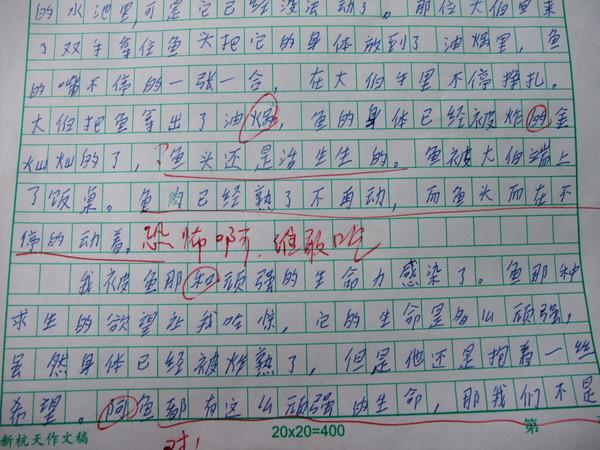 的水池里,可是它已经没法动了。那位大伯里来
了双手拿住鱼头把它的身体放到了油焗里,鱼
的嘴不停的一张一合,在大伯手里不停挣扎。
大伯把鱼拿出了油焗,鱼的身体已经被炸的金
灿灿的了,鱼头还是活生生的。鱼被大伯端上
了饭桌。鱼肉已经熟了不再动,而鱼头而在不
停的动着。恐怖啊,谁敢吃
我被鱼那和顽强的生命力感染了。鱼那种
求生的欲望让我吃惊,它的生命是多么顽强,
虽然身体已经被炸熟了,但是他还是抱着一丝
希望。阿鱼都有这么顽强的生命,那我们不是
新杭天作文稿 20x20=400 第
对!